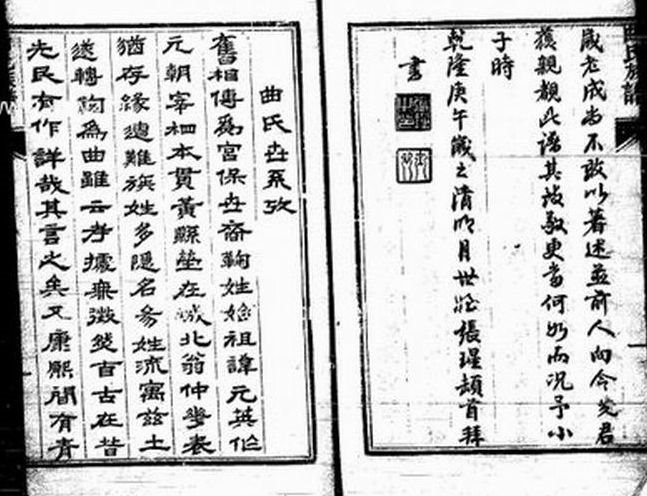 曲氏族譜
歲老成尚不敢以著述並前人向令先君
獲親覩此譜其敬更當何如而況予小
子時
乾隆庚午歲之清明月世姪張瑾頓首拜
書
曲氏世系攷
舊相傳爲宮保世裔鞠姓始祖諱元英仕
元朝宰相本貫黃縣塋在城北翁仲華表
猶存緣遭難族姓多隱名易姓流寓茲土
遂轉鞠爲曲雖云考據無徵然自古在昔
先民有作詳哉其言之矣又康熙間有青